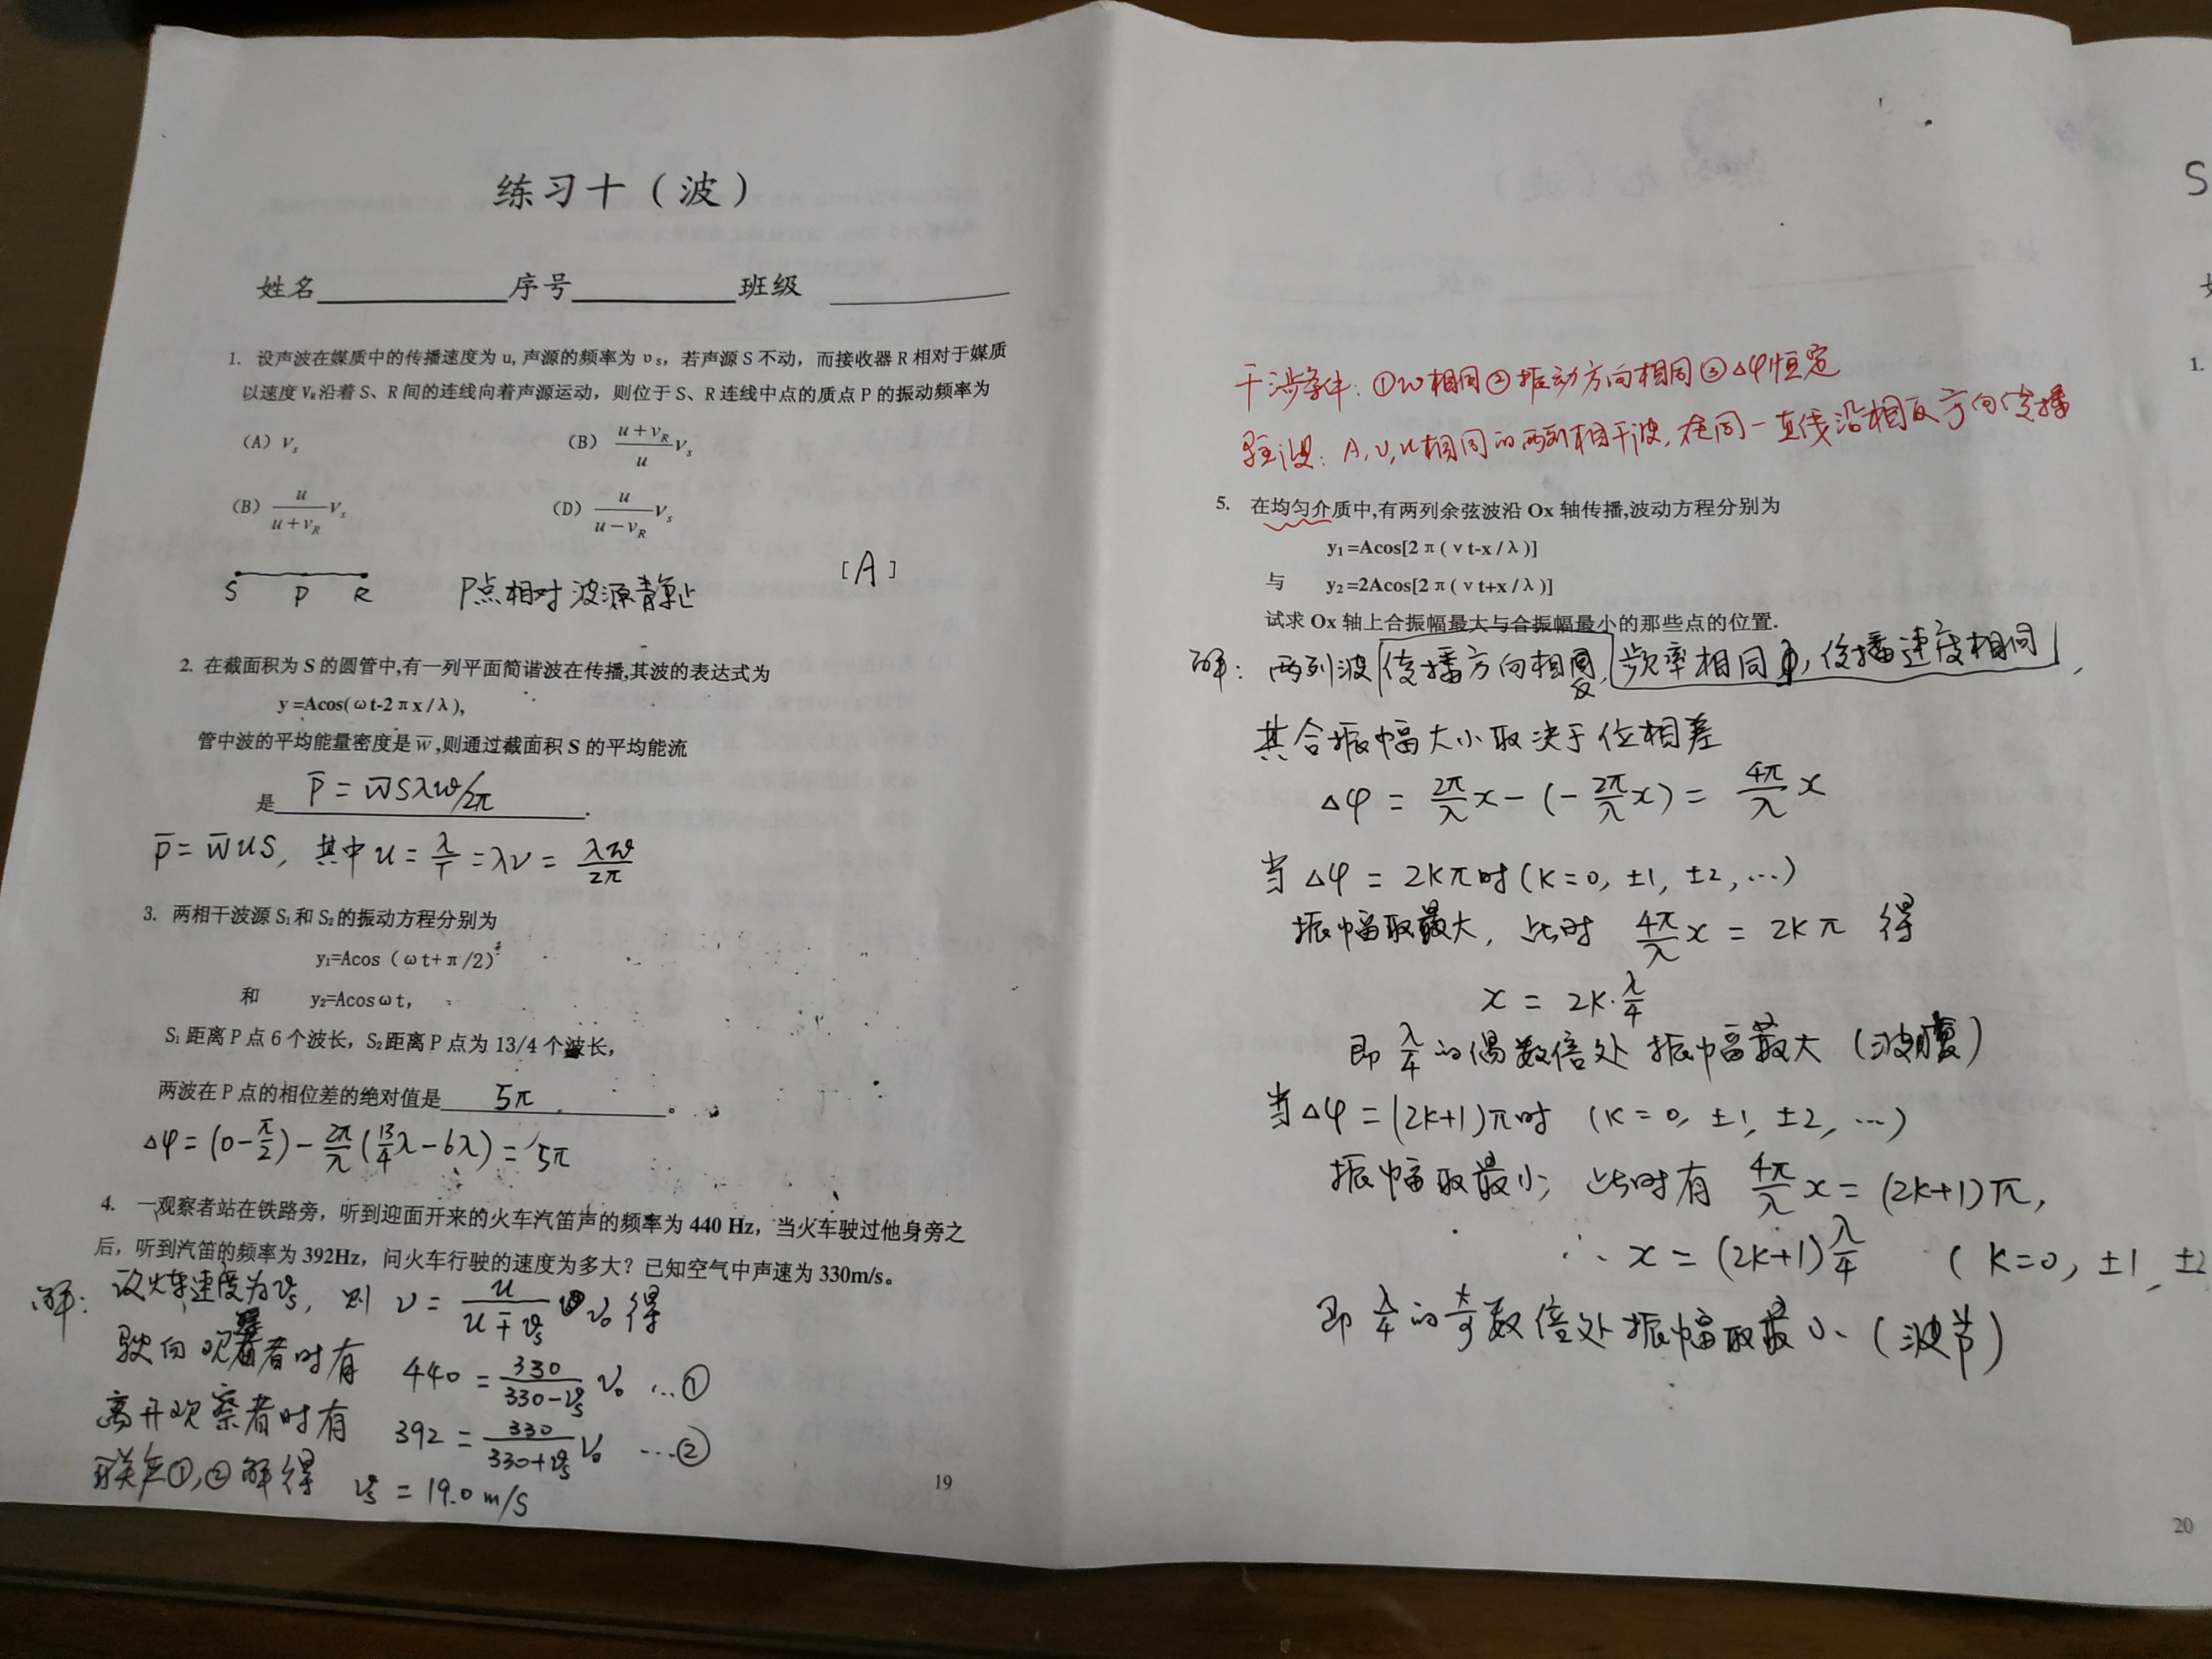 练习十（波）
姓名 序号 班级
1. 设声波在媒质中的传播速度为 u, 声源的频率为 υs，若声源 S 不动，而接收器 R 相对于媒质
以速度 VR沿着 S、R 间的连线向着声源运动，则位于 S、R 连线中点的质点 P 的振动频率为
（A）νs （B）(u+vR)/u νs
（B）u/(u+vR) νs （D）u/(u−vR) νs
[A]
S P R P点相对波源静止
2. 在截面积为 S 的圆管中,有一列平面简谐波在传播,其波的表达式为
y =Acos(ωt-2πx/λ),
管中波的平均能量密度是 w̅,则通过截面积 S 的平均能流
是 P̅ = w̅Sλω/2π .
P̅ = w̅uS, 其中 u = λ/T = λν = λω/2π
3. 两相干波源 S₁和 S₂的振动方程分别为
y₁=Acos（ωt+π/2）
和 y₂=Acosωt,
S₁距离 P 点 6 个波长，S₂距离 P 点为 13/4 个波长,
两波在 P 点的相位差的绝对值是 5π 。
△φ = (0−π/2) − 2π/λ (13/4 λ − 6λ) = 5π
4. 一观察者站在铁路旁，听到迎面开来的火车汽笛声的频率为 440 Hz，当火车驶过他身旁之
后，听到汽笛的频率为 392Hz，问火车行驶的速度为多大？已知空气中声速为 330m/s。
解: 设火车速度为vs, 则 ν = u/(u∓vs) ν₀ 得
驶向观察者时有 440 = 330/(330−vs) ν₀ …①
离开观察者时有 392 = 330/(330+vs) ν₀ …②
联立①,②解得 vs = 19.0 m/s
19
干涉条件: ①w相同②振动方向相同③△φ恒定
驻波: A,ν,u相同的两列相干波, 在同一直线沿相反方向传播
5. 在均匀介质中,有两列余弦波沿 Ox 轴传播,波动方程分别为
y₁=Acos[2π(νt-x/λ)]
与 y₂=2Acos[2π(νt+x/λ)]
试求 Ox 轴上合振幅最大与合振幅最小的那些点的位置.
解: 两列波传播方向相反, 频率相同, 传播速度相同,
其合振幅大小取决于位相差
△φ = 2π/λ x − (− 2π/λ x) = 4π/λ x
当 △φ = 2kπ时 (k=0, ±1, ±2, …)
振幅取最大, 此时 4π/λ x = 2kπ 得
x = 2k·λ/4
即 λ/4 的偶数倍处 振幅最大 (波腹)
当△φ = (2k+1)π时 (k=0, ±1, ±2, …)
振幅取最小, 此时有 4π/λ x = (2k+1)π,
∴ x = (2k+1)λ/4 (k=0, ±1, ±2
即 λ/4 的奇数倍处振幅取最小 (波节)
20
S
1.